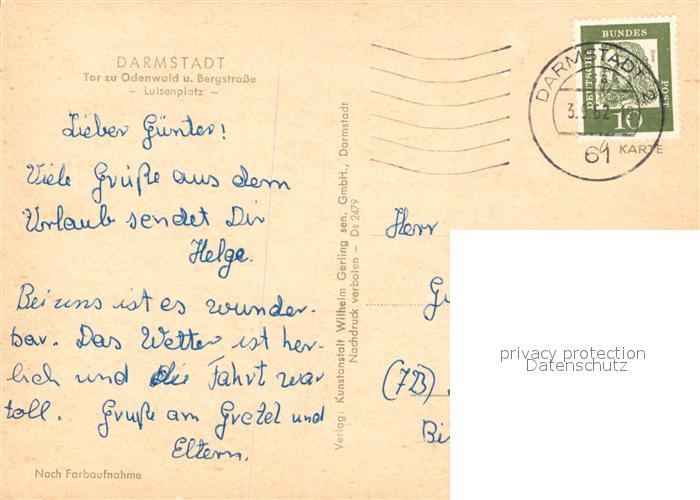 DARMSTADT
Tor zu Odenwald u. Bergstraße
– Luisenplatz –
Lieber Günter!
Viele Grüße aus dem
Urlaub sendet Dir
Helge.
Bei uns ist es wunder-
bar. Das Wetter ist herr-
lich und die Fahrt war
toll. Gruße am Gretel und
Eltern.
Nach Farbaufnahme
Verlag: Kunstanstalt Wilhelm Gerling sen. GmbH., Darmstadt
Nachdruck verboten – Ds 2479
DEUTSCHE
BUNDES
POST
10
DARMSTADT 2
61
KARTE
Herr
(723)
privacy protection
Datenschutz